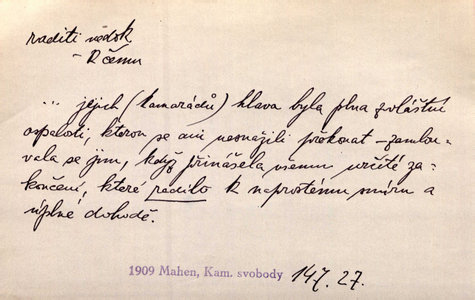 raditi nědok
– k čemu
... jejich (kamarádů) hlava byla plna zvláštní
ospalosti, kterou se ani nesnažili překonat – zamlou-
vala se jim, když přinášela všemu určité za-
končení, které radilo k naprostému smíru a
úplné dohodě.
1909 Mahen, Kam. svobody 147. 27.